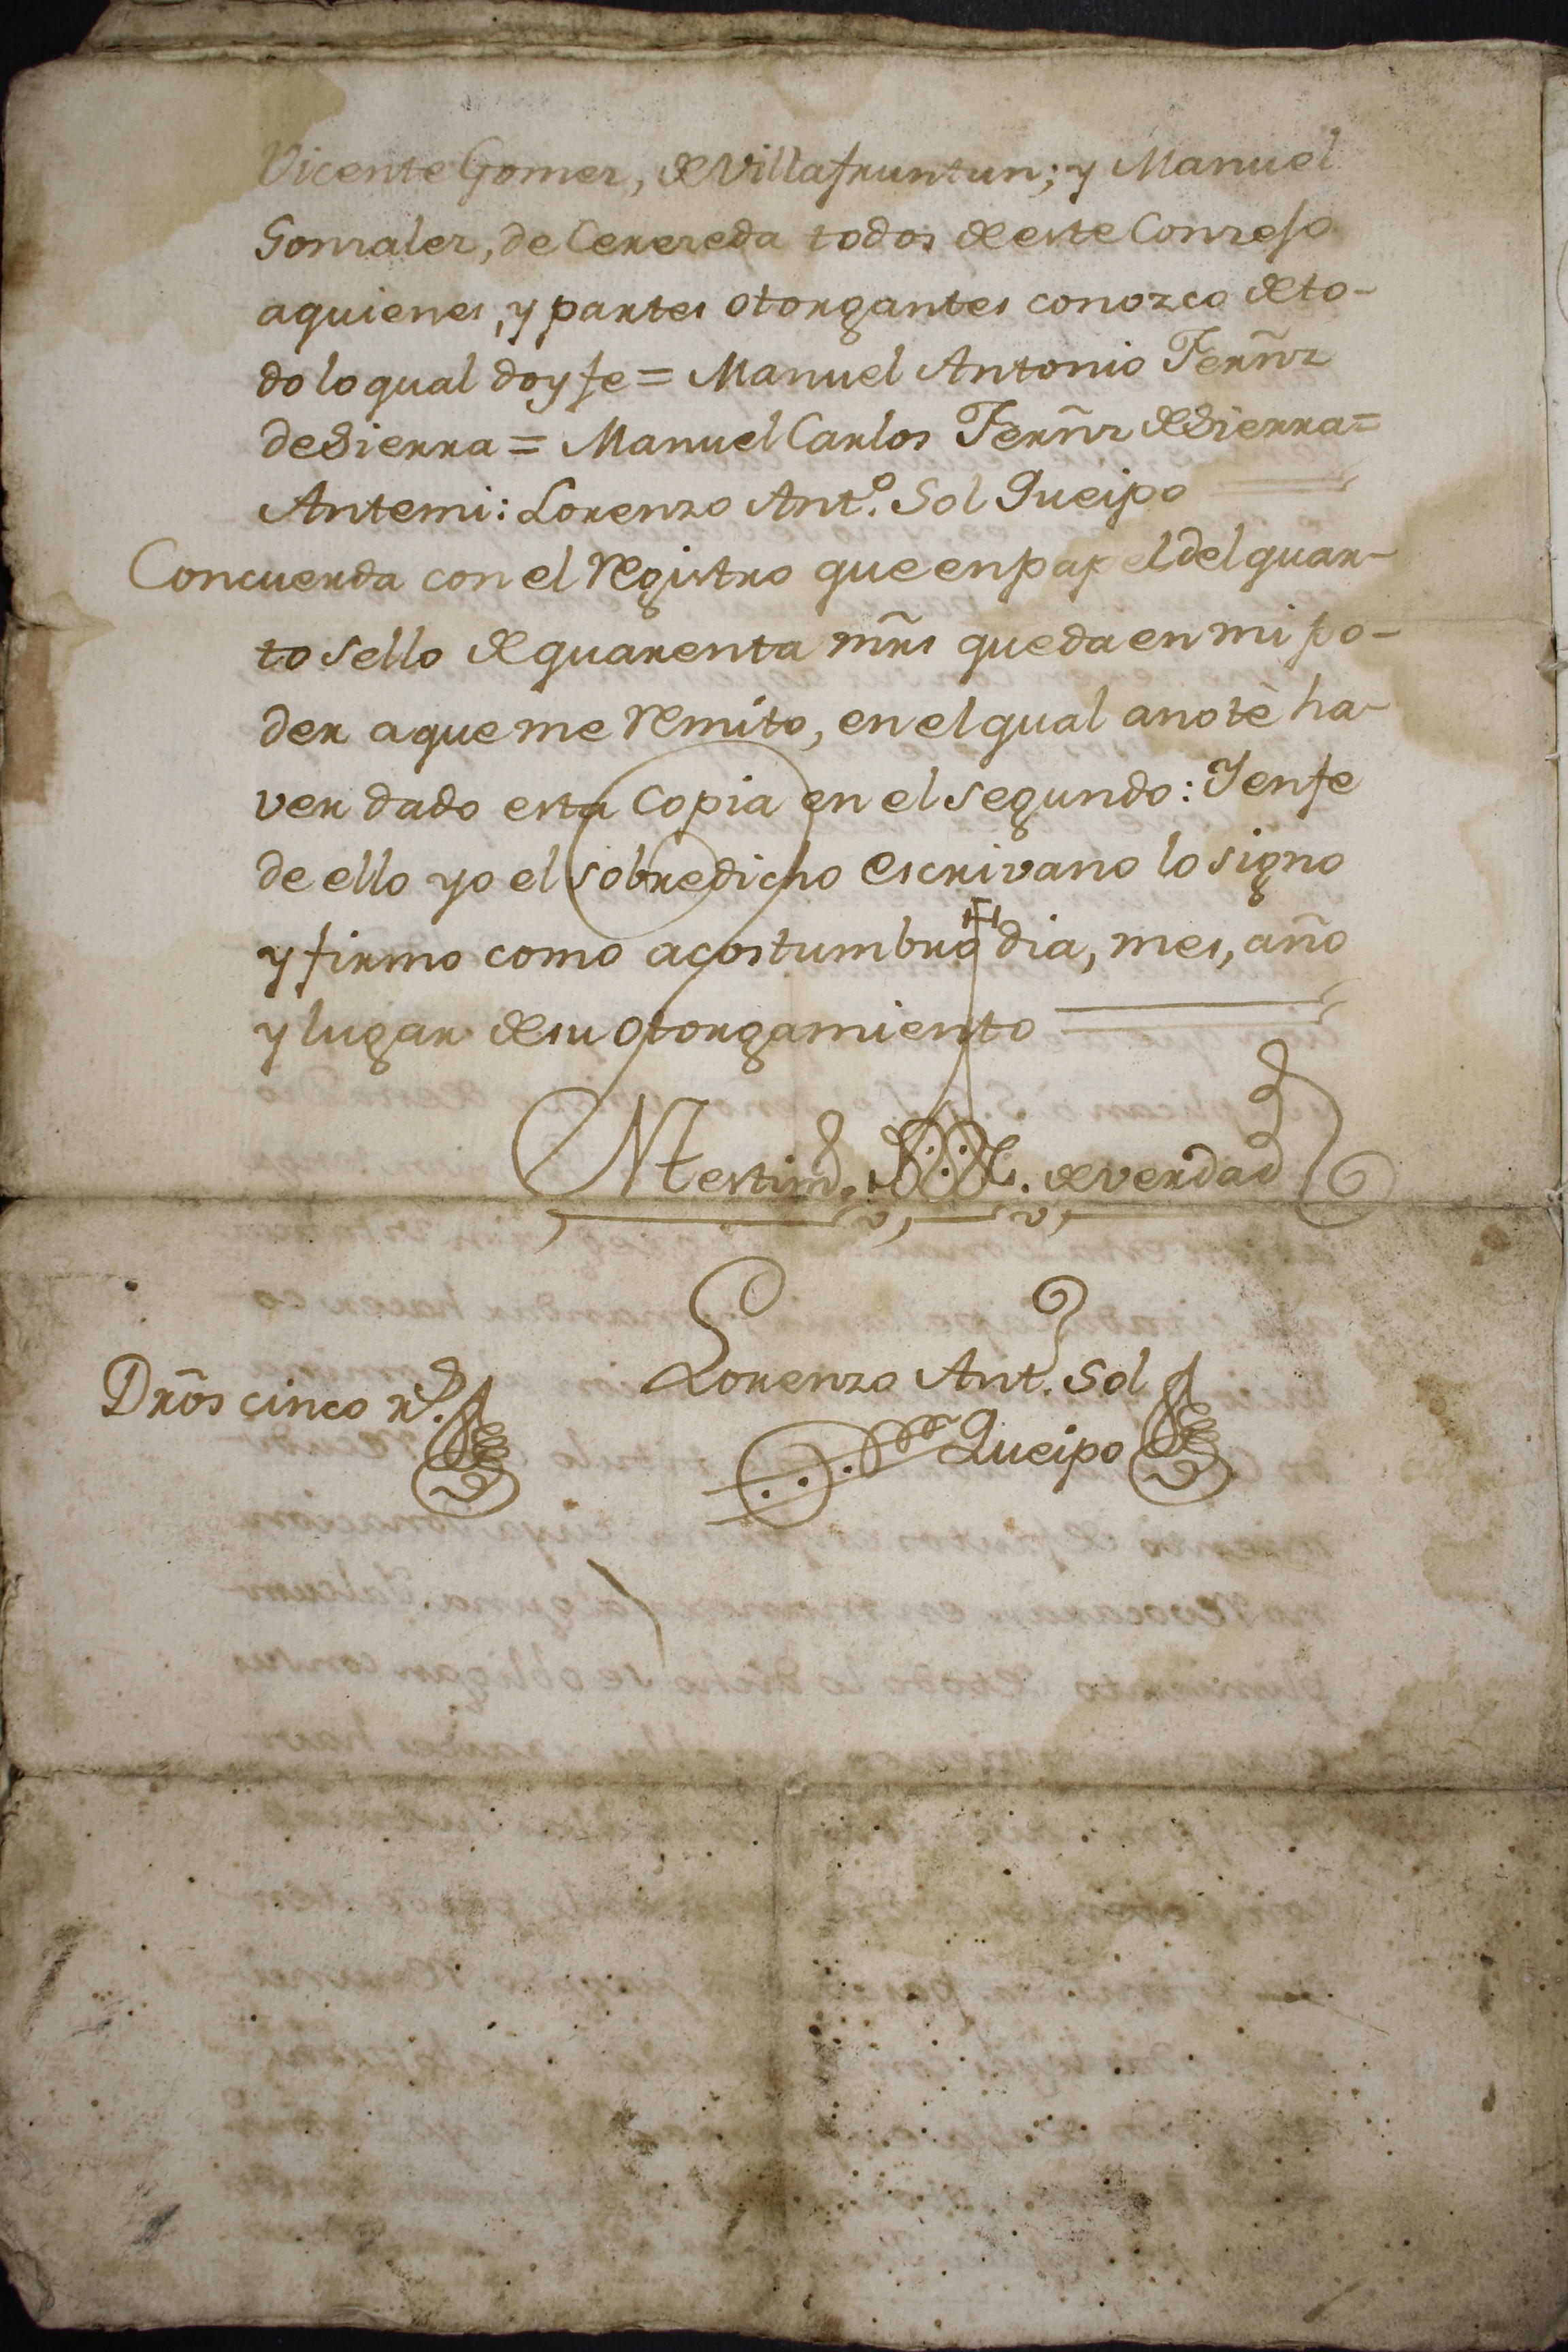 Vicente Gomez, de Villafruntun; y Manuel
Gonzalez, de Cerezeda todos de este Conzejo
aquienes, y partes otorgantes conozco de to-
do lo qual doy fe = Manuel Antonio Ferñz
de Sierra = Manuel Carlos Ferñz de Sierra =
Antemi: Lorenzo Ant.º Sol Queipo
Concuerda con el Registro que en papel del quar-
to sello de quarenta mr̃s queda en mi po-
der a que me Remito, en el qual anotè ha-
ver dado esta Copia en el segundo: Y en fe
de ello yo el sobredicho escrivano lo signo
y firmo como acostumbro dia, mes, año
y lugar de su otorgamiento
En testim.º de verdad
Lorenzo Ant.º Sol
Queipo
Dr̃os cinco r.s